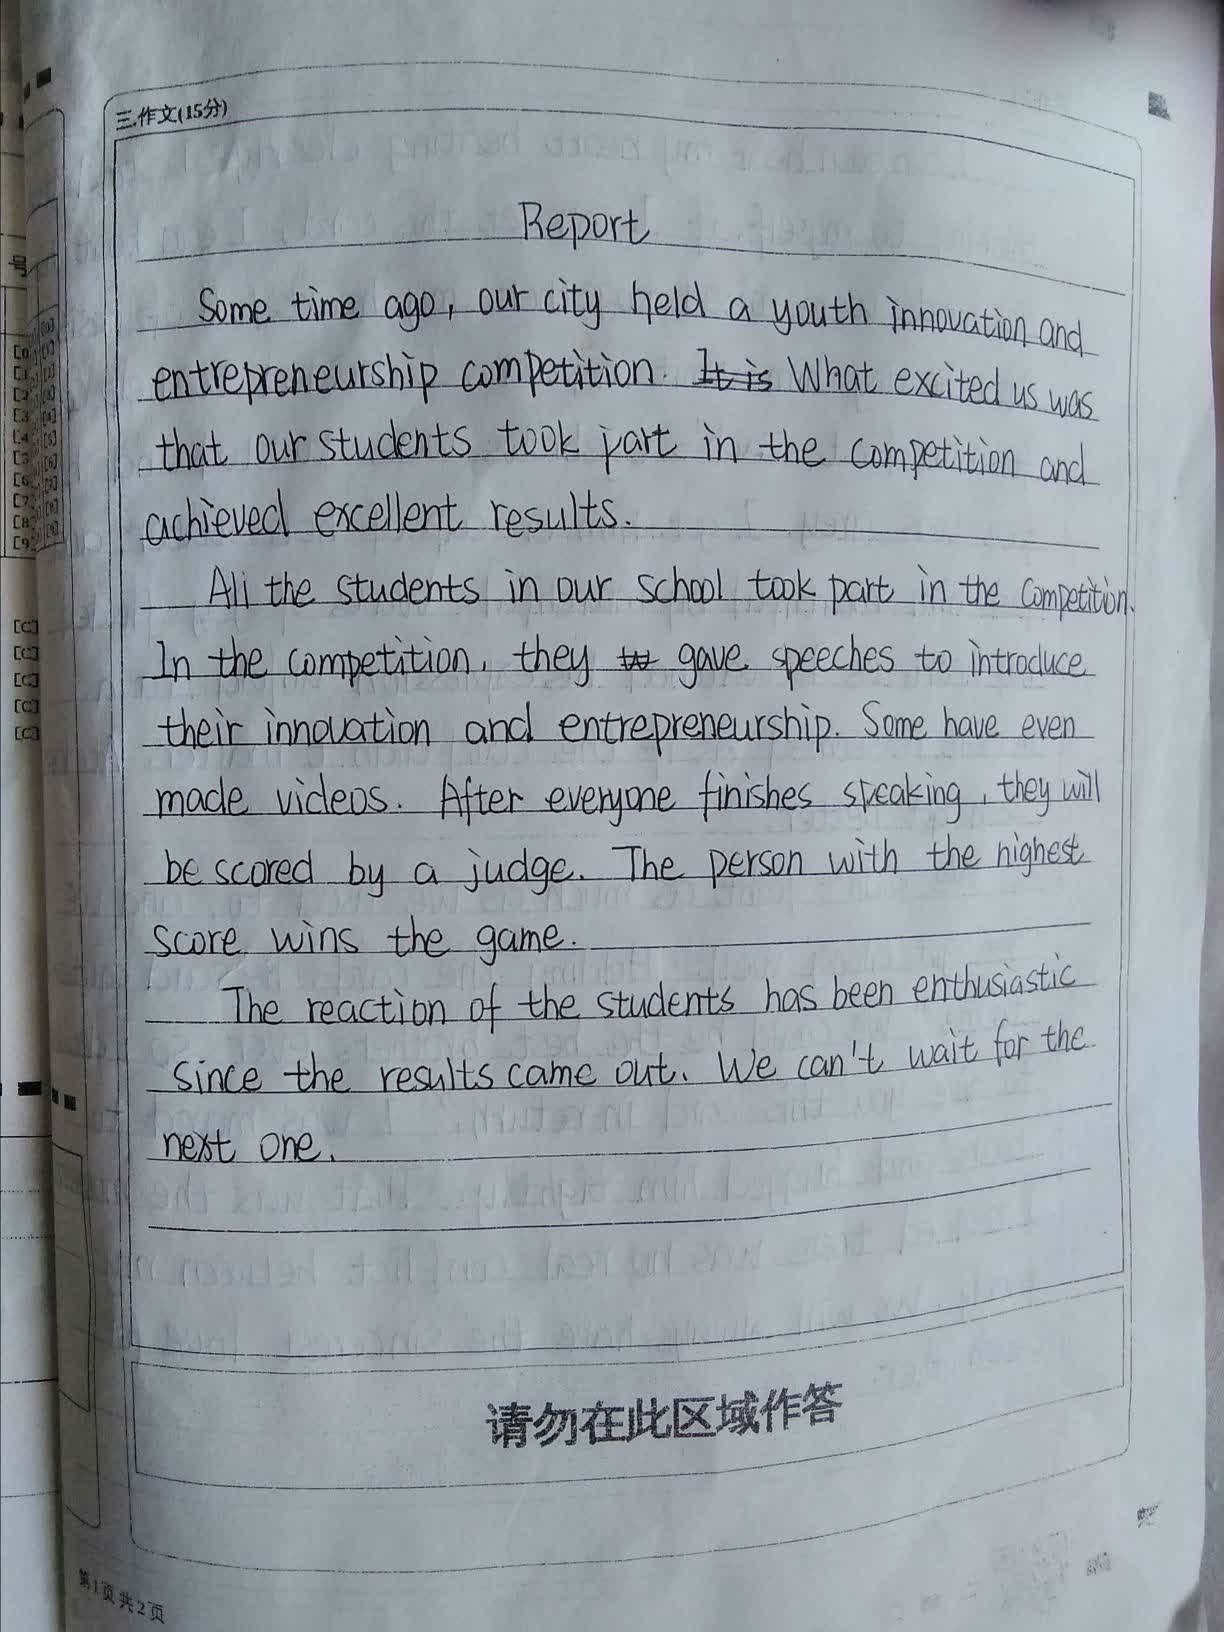 三.作文(15分)
Report
Some time ago, our city held a youth innovation and
entrepreneurship competition. It is What excited us was
that our students took part in the competition and
achieved excellent results.
All the students in our school took part in the competition.
In the competition, they gave speeches to introduce
their innovation and entrepreneurship. Some have even
made videos. After everyone finishes speaking, they will
be scored by a judge. The person with the highest
score wins the game.
The reaction of the students has been enthusiastic
since the results came out. We can't wait for the
next one.
请勿在此区域作答
第1页共2页
号
[C]
[C]
[C]
[C]
[C]